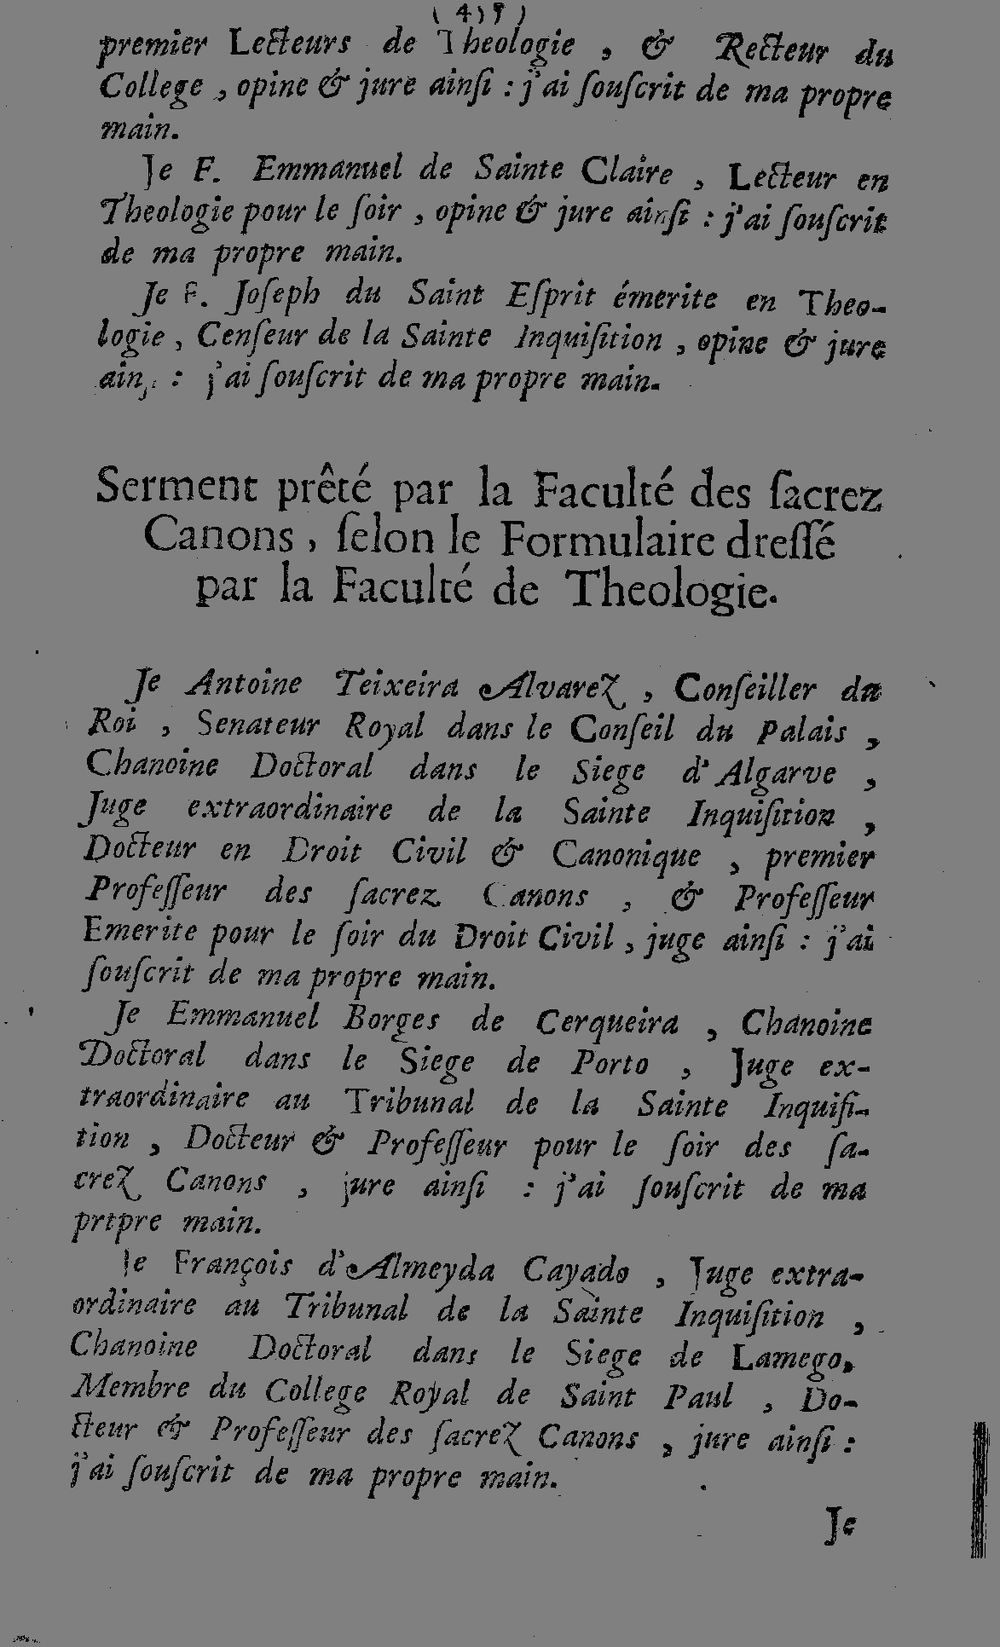 premier Lecteurs de Theologie , & Recteur du
College , opine & jure ainſi : j'ai ſouſcrit de ma propre
main.
Je F. Emmanuel de Sainte Claire , Lecteur en
Theologie pour le ſoir , opine & jure ainſi : j'ai ſouſcrit
de ma propre main.
Je F. Joſeph du Saint Eſprit émerite en Theo-
logie , Cenſeur de la Sainte Inquiſition , opine & jure
: j'ai ſouſcrit de ma propre main.
Serment prêté par la Faculté des ſacrez
Canons , ſelon le Formulaire dreſſé
par la Faculté de Theologie.
Je Antoine Teixeira Alvarez , Conſeiller du
Roi , Senateur Royal dans le Conſeil du Palais ,
Chanoine Doctoral dans le Siege d'Algarve ,
Juge extraordinaire de la Sainte Inquiſition ,
Docteur en Droit Civil & Canonique , premier
Profeſſeur des ſacrez Canons , & Profeſſeur
Emerite pour le ſoir du Droit Civil , juge ainſi : j'ai
ſouſcrit de ma propre main.
Je Emmanuel Borges de Cerqueira , Chanoine
Doctoral dans le Siege de Porto , Juge ex-
traordinaire au Tribunal de la Sainte Inquiſi-
tion , Docteur & Profeſſeur pour le ſoir des ſa-
crez Canons , jure ainſi : j'ai ſouſcrit de ma
prtpre main.
Je François d'Almeyda Cayado , Juge extra-
ordinaire au Tribunal de la Sainte Inquiſition ,
Chanoine Doctoral dans le Siege de Lamego,
Membre du College Royal de Saint Paul , Do-
cteur & Profeſſeur des ſacrez Canons , jure ainſi :
j'ai ſouſcrit de ma propre main.
Je